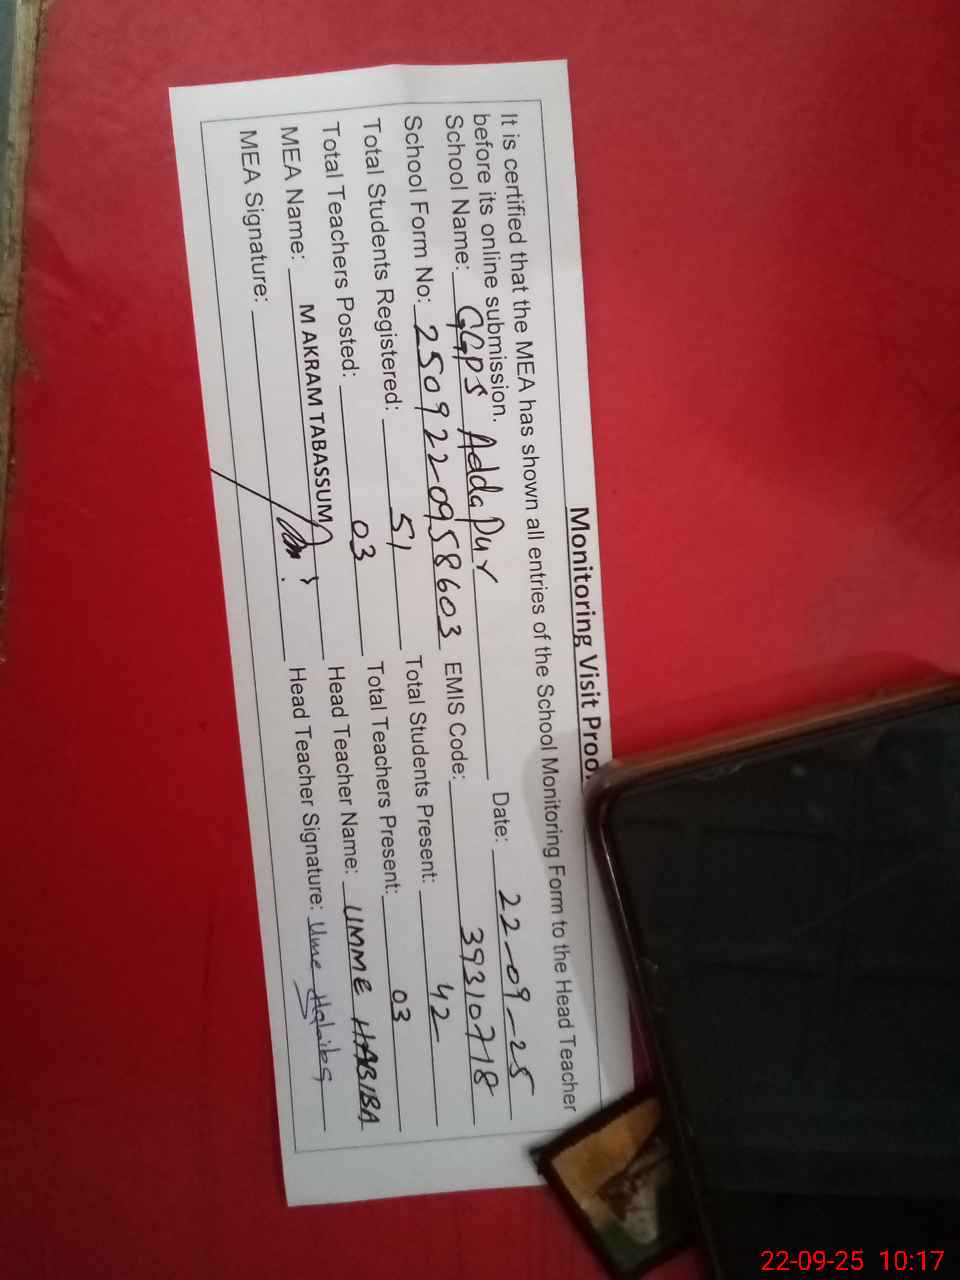 Monitoring Visit Proo
It is certified that the MEA has shown all entries of the School Monitoring Form to the Head Teacher
before its online submission. Date: 22-09-25
School Name: GGPS Adda Pur
School Form No: 250922-0958603 EMIS Code: 39310718
Total Students Registered: 51 Total Students Present: 42
Total Teachers Posted: 03 Total Teachers Present: 03
MEA Name: M AKRAM TABASSUM Head Teacher Name: UMME HABIBA
MEA Signature: Head Teacher Signature: Ume Habiba
22-09-25 10:17